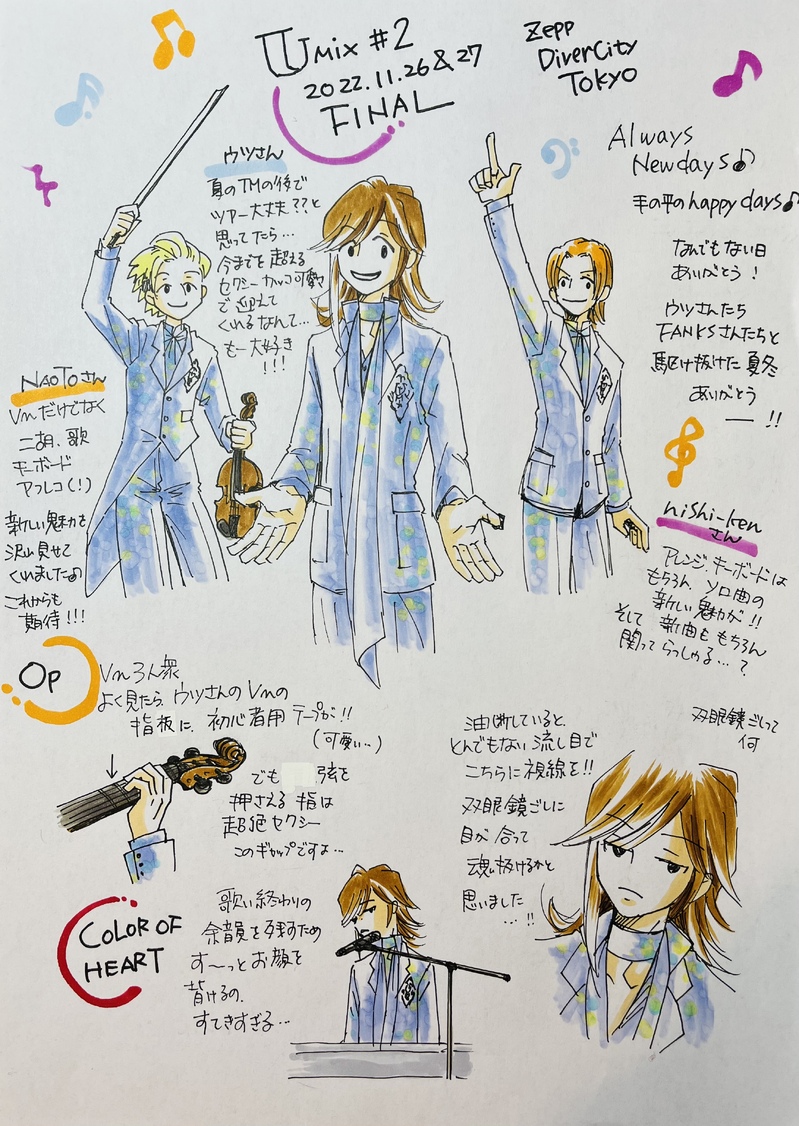 U Mix #2
2022.11.26&27
FINAL
Zepp
DiverCity
Tokyo
ウツさん
夏のTMの後で
ツアー大丈夫??と
思ってたら…
今までを超える
セクシーカッコ可愛さ
で迎えて
くれるなんて…
もー大好き
!!!
Always
New days♪
手の平のhappy days♪
なんでもない日
ありがとう!
ウツさんたち
FANKSさんたちと
駆け抜けた夏冬
ありがとう
ー!!
NAOTOさん
Vnだけでなく
二胡、歌
キーボード
アフレコ(!)
新しい魅力を
沢山見せて
くれました♪
これからも
期待!!!
nishi-ken
さん
アレンジ、キーボードは
もちろん、ソロ曲の
新しい魅力が!!
そして新曲ももちろん
関ってらっしゃる…?
Op
Vn3人衆
よく見たら、ウツさんのVnの
指板に、初心者用テープが!!
(可愛い…)
でも 弦を
押さえる指は
超絶セクシー
このギャップですよ…
油断していると、
とんでもない流し目で
こちらに視線を!!
双眼鏡ごしに
目が合って
魂抜けるかと
思いました
…!!
双眼鏡ごしって
何
COLOR OF
HEART
歌い終わりの
余韻を残すため
す〜っとお顔を
背けるの、
すてきすぎる…